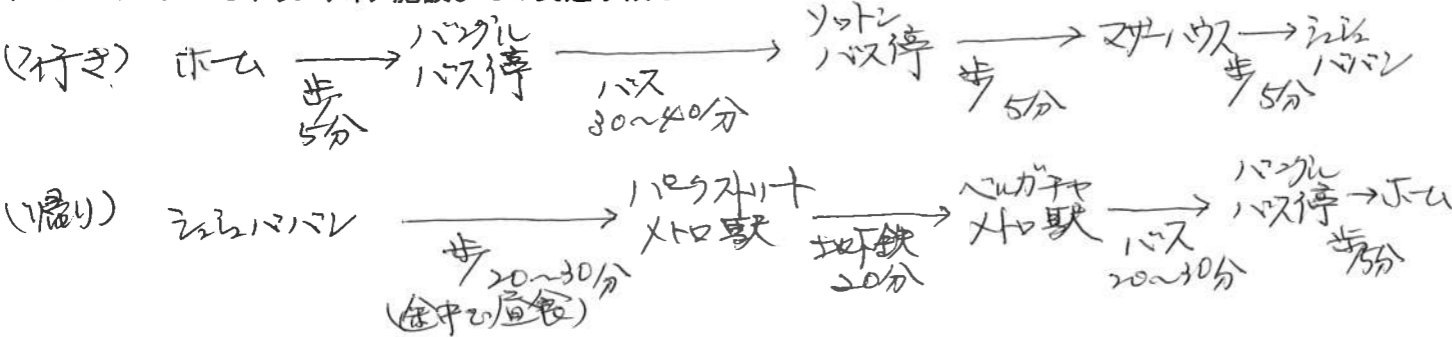 (行き) ホーム → バングルバス停 → ソットンバス停 → マザーハウス → シシュババン
歩5分 バス30~40分 歩5分 歩5分
(帰り) シシュババン → パークストリートメトロ駅 → ベルガチヤメトロ駅 → バングルバス停 → ホーム
歩20~30分 地下鉄20分 バス20~30分 歩5分
(途中で昼食)